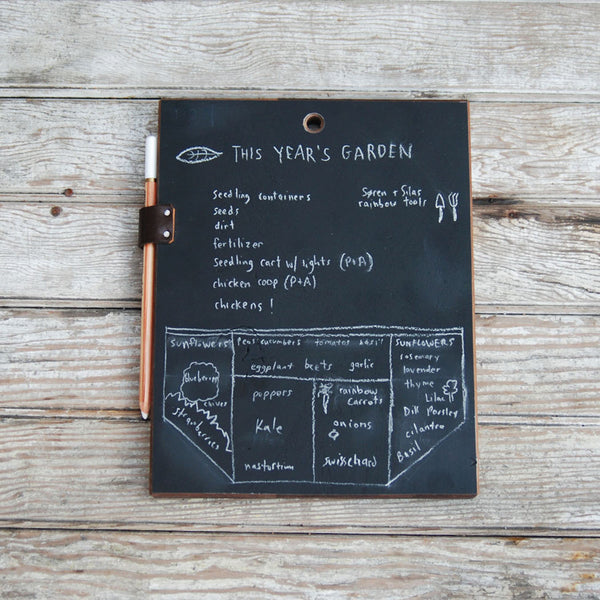 THIS YEAR'S GARDEN
Seedling containers
Seeds
dirt
fertilizer
Seedling cart w/ lights (P+A)
chicken coop (P+A)
chickens!
Søren + Silas
rainbow tools
sunflowers
Blueberries
chives
Strawberries
Peas cucumbers tomatos basil
eggplant beets garlic
peppers
Kale
nasturtium
rainbow
Carrots
onions
swisschard
SUNFLOWERS
rosemary
lavender
thyme
Lilac
Dill Parsley
cilantro
Basil